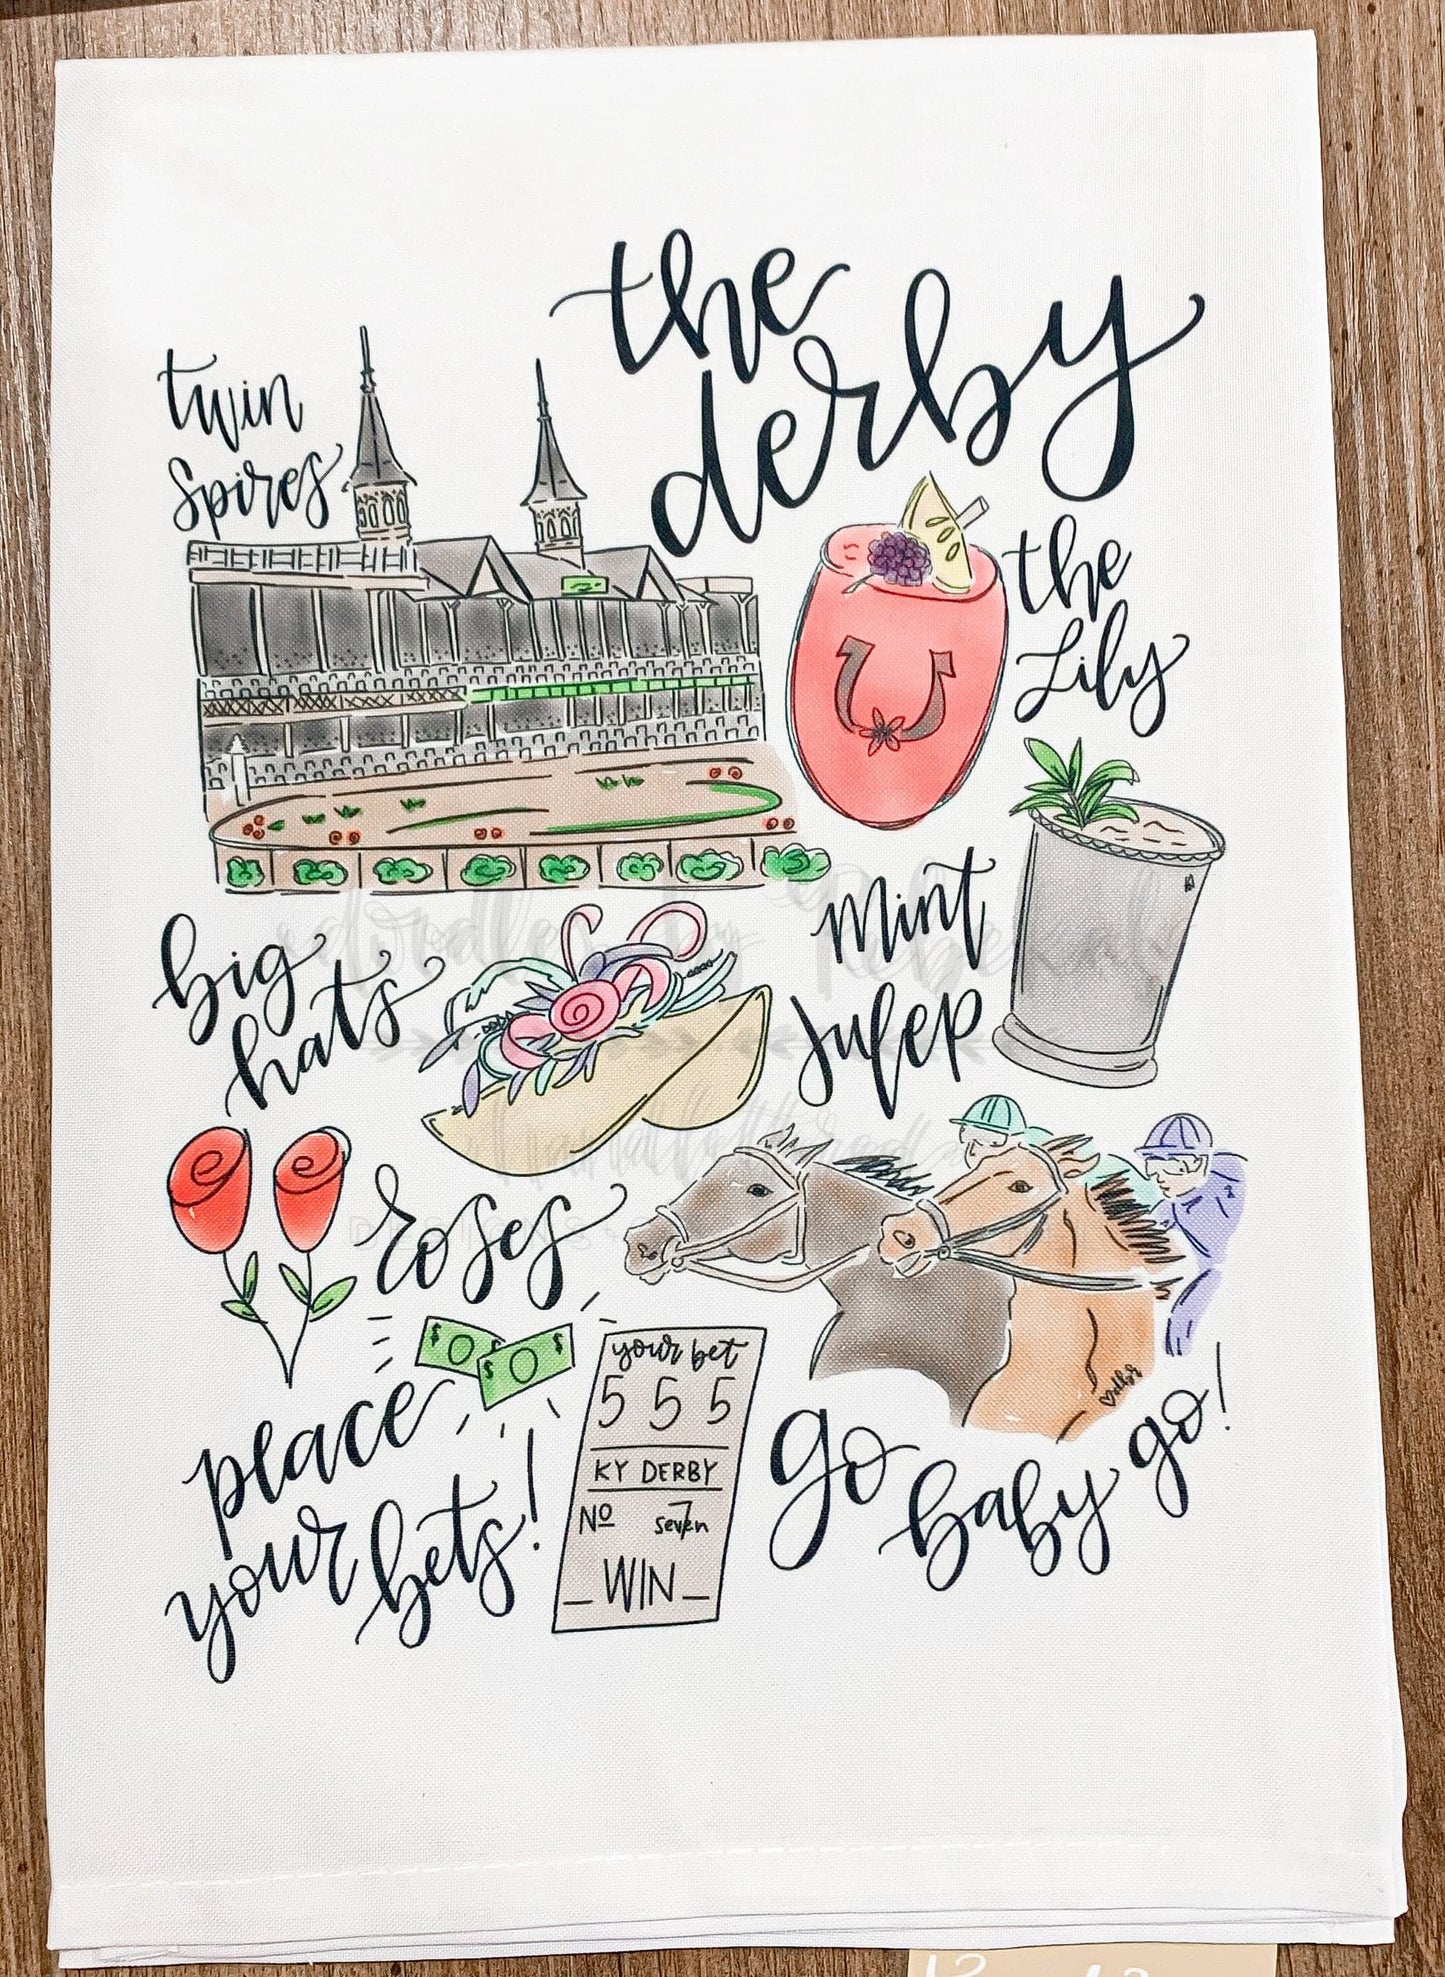 the
derby
twin
spires
the
Lily
mint
Julep
big
hats
roses
place
your
bets!
your bet
5 5 5
KY DERBY
No seven
WIN
go
baby
go!
doodles by Rebekah
DESIGNS